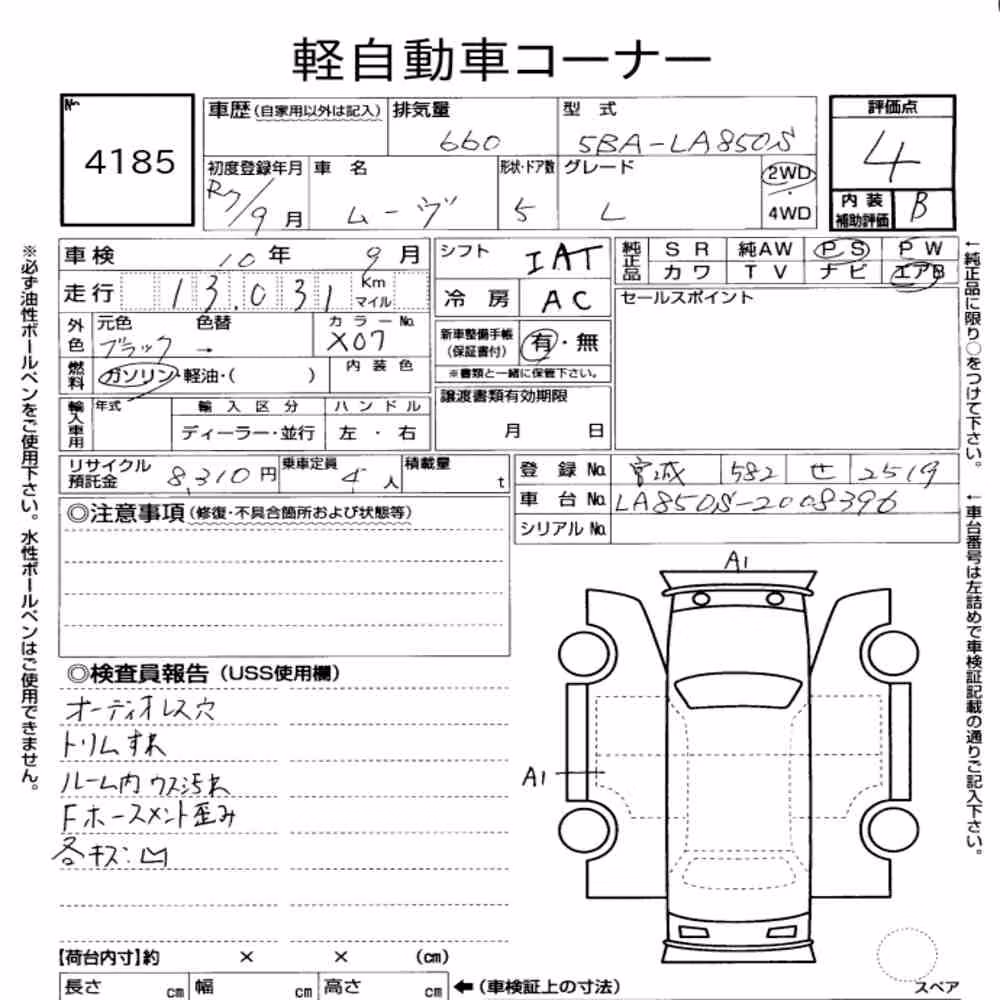 軽自動車コーナー
No. 4185
車歴(自家用以外は記入) 排気量 660 型式 5BA-LA850S
評価点 4
初度登録年月 R7/9月 車名 ムーヴ 形状・ドア数 5 グレード L 2WD・4WD
内装補助評価 B
車検 10年9月 シフト IAT 純正品 SR 純AW PS PW
カワ TV ナビ エアB
走行 13.031 Km マイル 冷房 AC セールスポイント
外色 元色 ブラック → 色替 カラーNo. X07
新車整備手帳(保証書付) 有・無
※書類と一緒に保管下さい。
燃料 ガソリン・軽油・( ) 内装色
譲渡書類有効期限 月 日
輸入車用 年式 輸入区分 ハンドル
ディーラー・並行 左・右
リサイクル預託金 8,310円 乗車定員 4人 積載量 t
登録No. 宮城 582 せ 2519
車台No. LA850S-2008396
シリアルNo.
◎注意事項(修復・不具合箇所および状態等)
◎検査員報告(USS使用欄)
オーディオレス穴
トリムすれ
ルーム内ウス汚れ
Fホースメント歪み
各キズ:凹
A1
A1
【荷台内寸】約 × × (cm)
長さ cm 幅 cm 高さ cm ←(車検証上の寸法)
スペア
※必ず油性ボールペンをご使用下さい。水性ボールペンはご使用できません。
←純正品に限り○をつけて下さい。
←車台番号は左詰めで車検証記載の通りご記入下さい。